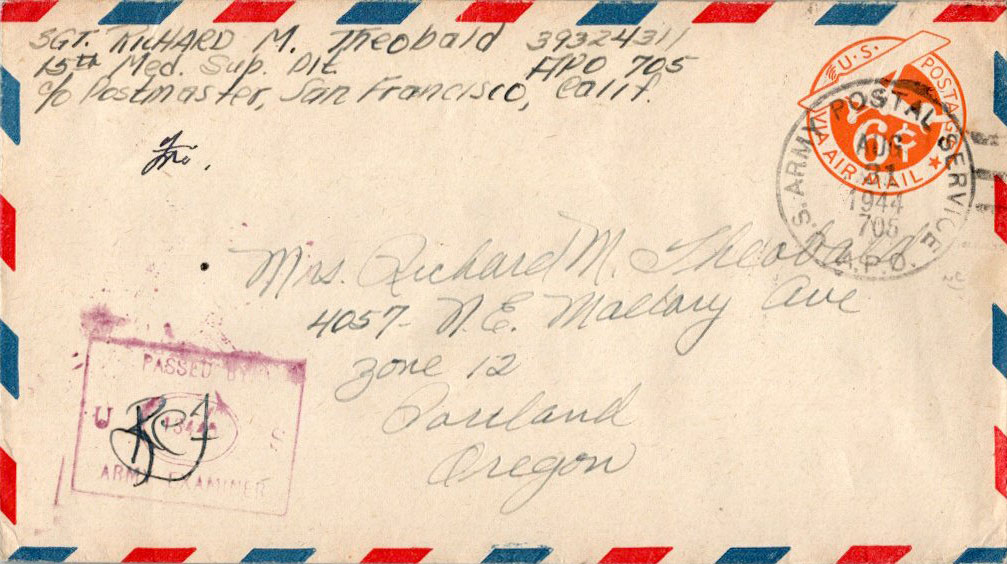 SGT. RICHARD M. Theobald 39324311
15th Med. Sup. Dit. APO 705
c/o Postmaster, San Francisco, Calif.
U.S. POSTAGE
6¢
VIA AIR MAIL
U.S. ARMY POSTAL SERVICE
AUG
31
1944
705
A.P.O.
Mrs. Richard M. Theobald
4057 - N.E. Mallory Ave
Zone 12
Portland
Oregon
PASSED BY
U S
ARMY EXAMINER